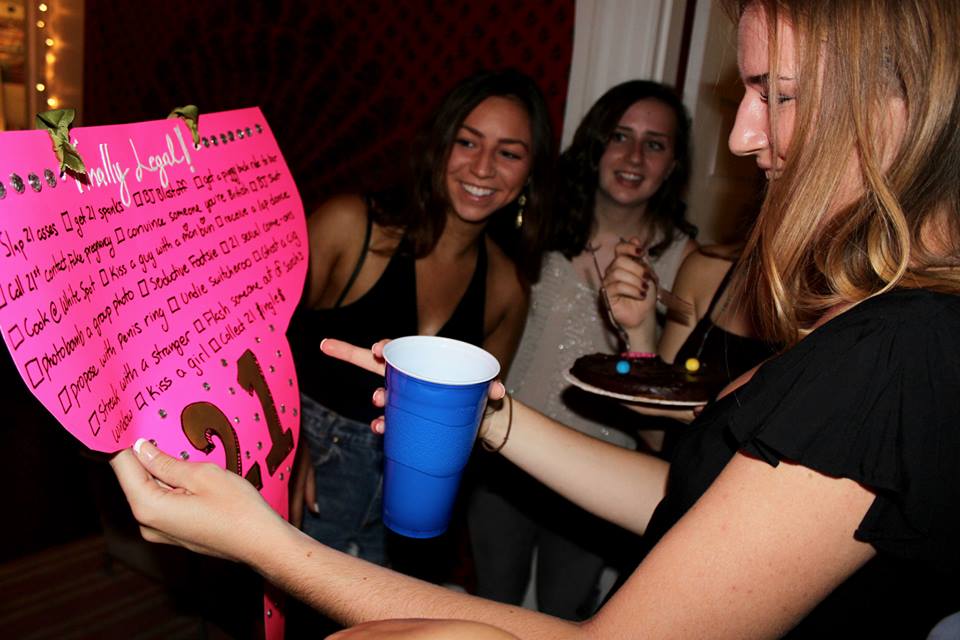 Finally Legal!
Slap 21 asses ☐ get 21 spanks ☐ BJ Blastoff ☐ get a piggy back ride to bar
☐ call 21st contact, fake pregnancy ☐ convince someone you're British ☐ BJ Shot
☐ Cook @ White Spot ☐ Kiss a guy with a man bun ☐ receive a lap dance
☐ photobomb a group photo ☐ Seductive Footsie ☐ 21 sexual come-ons
☐ propose with penis ring ☐ Undie switcheroo ☐ Ghost a guy
☐ Streak with a stranger ☐ Flash someone out of Sarah's
window ☐ Kiss a girl ☐ Collect 21 $ingle$
21